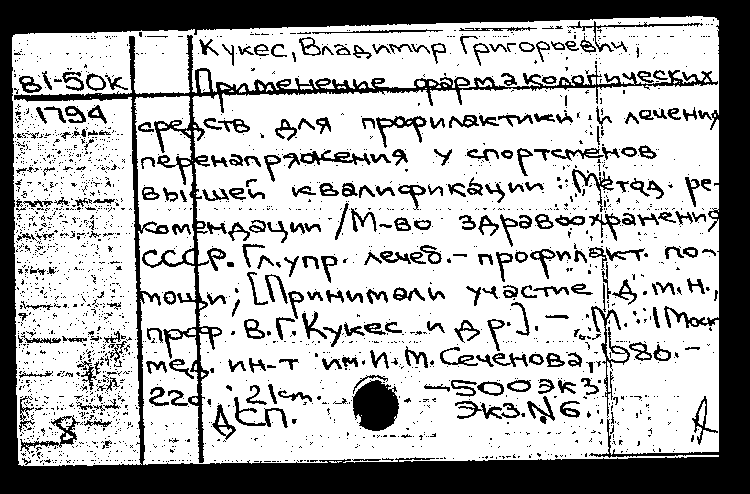 Кукес, Владимир Григорьевич,
81-50к Применение фармакологических
1794
средств для профилактики и лечения
перенапряжения у спортсменов
высшей квалификации : Метод. ре-
комендации / М-во здравоохранения
СССР. Гл. упр. лечеб.-профилакт. по-
мощи; [Принимали участие д.м.н.,
проф. В.Г. Кукес и др.]. — М. : 1 Моск
мед. ин-т им. И.М. Сеченова, 1980. —
22с. ; 21см. — 500 экз.
ДСП. Экз. N6.
8